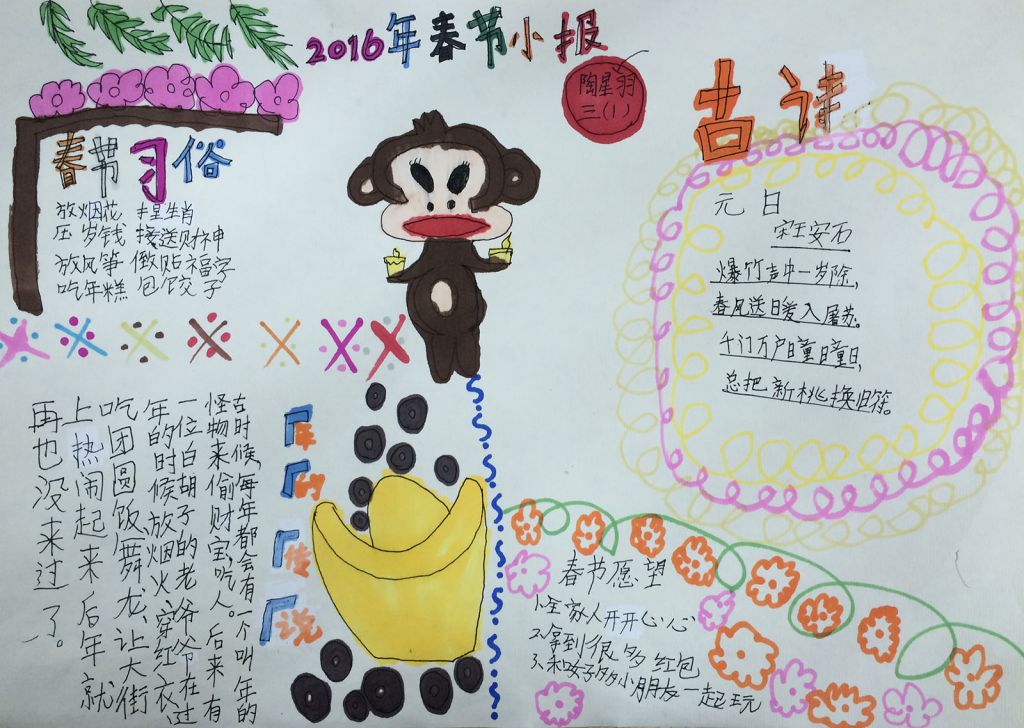 2016年春节小报
陶星羽
三(1)
春节习俗
放烟花 十二生肖
压岁钱 接送财神
放风筝 倒贴福字
吃年糕 包饺子
古诗
元日
宋王安石
爆竹声中一岁除,
春风送日爱入屠苏。
千门万户曈曈日,
总把新桃换旧符。
年的传说
古时候,每年都会有一个叫年的
怪物来偷财宝,吃人。后来有
一位白胡子的老爷爷在过
年的时候放烟火穿红衣,
吃团圆饭,舞龙,让大街
上热闹起来后年就
再也没来过了。
春节愿望
1.全家人开开心心
2.拿到很多红包
3.和好多小朋友一起玩